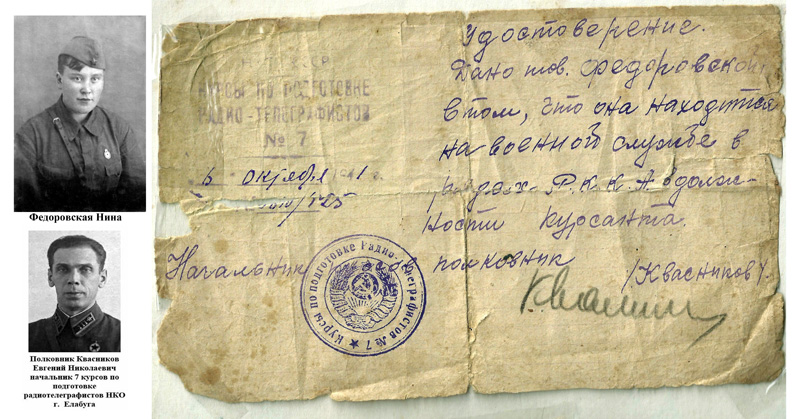 Федоровская Нина
Полковник Квасников
Евгений Николаевич
начальник 7 курсов по
подготовке
радиотелеграфистов НКО
г. Елабуга
КУРСЫ ПО ПОДГОТОВКЕ
РАДИО-ТЕЛЕГРАФИСТОВ
№ 7
октября
Удостоверение.
Дано тов. Федоровской
в том, что она находится
на военной службе в
рядах Р.К.К.А. в долж-
ности курсанта.
Начальник
полковник
/Квасников/
Курсы по подготовке Радио-телеграфистов № 7